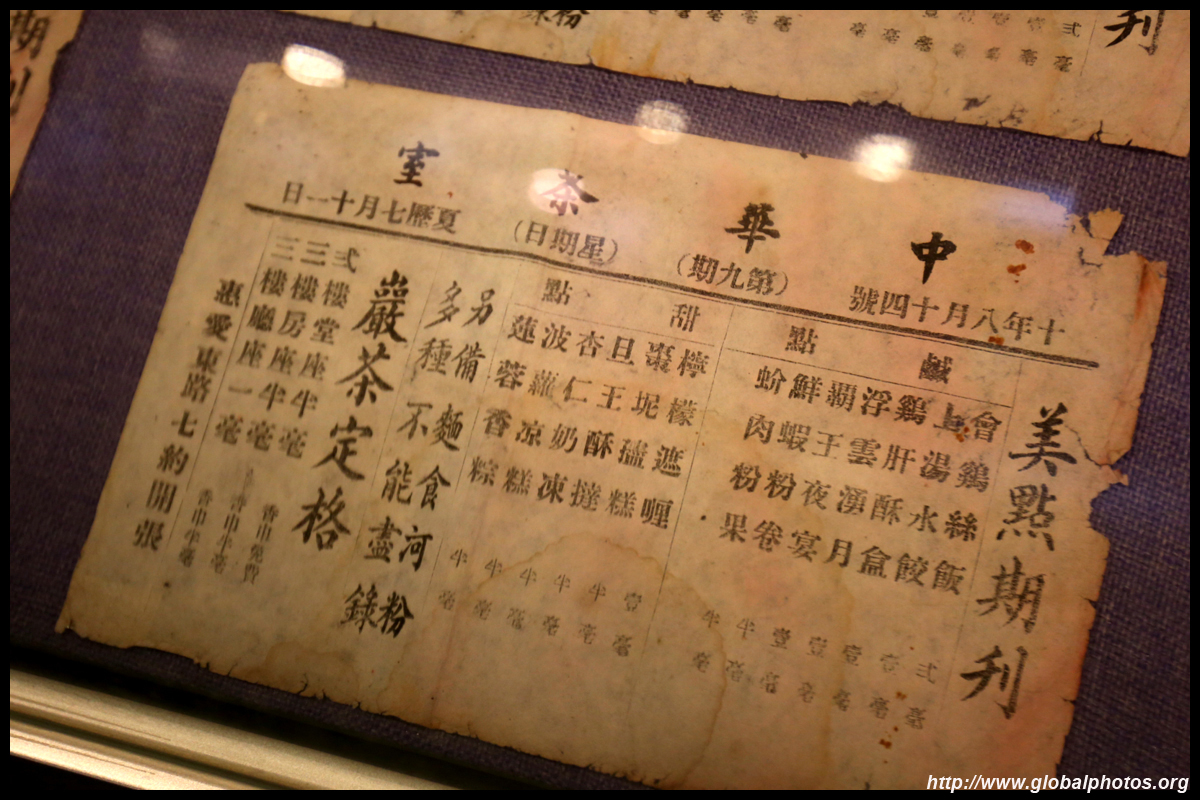 中華茶室
十年八月十四號 (第九期) (星期日) 夏歷七月十一日
美點期刊
鹹點
會鷄絲飯 弍毫
上湯水餃 壹毫
鷄肝酥盒 壹毫
浮雲湧月 壹毫
覇王夜宴 壹毫
鮮蝦粉卷 半毫
蚧肉粉果 半毫
甜點
檸檬遮喱 壹毫
棗坭糕 半毫
旦王酥撻 半毫
杏仁奶凍 半毫
波蘿凉糕 半毫
蓮蓉香粽 半毫
另備麵食河粉
多種不能盡錄
嚴茶定格
弍樓堂座半毫 香巾免費
三樓房座半毫 香巾半毫
三樓廳座一毫 香巾半毫
惠愛東路七約開張
刊
粉
錄
期刊
http://www.globalphotos.org